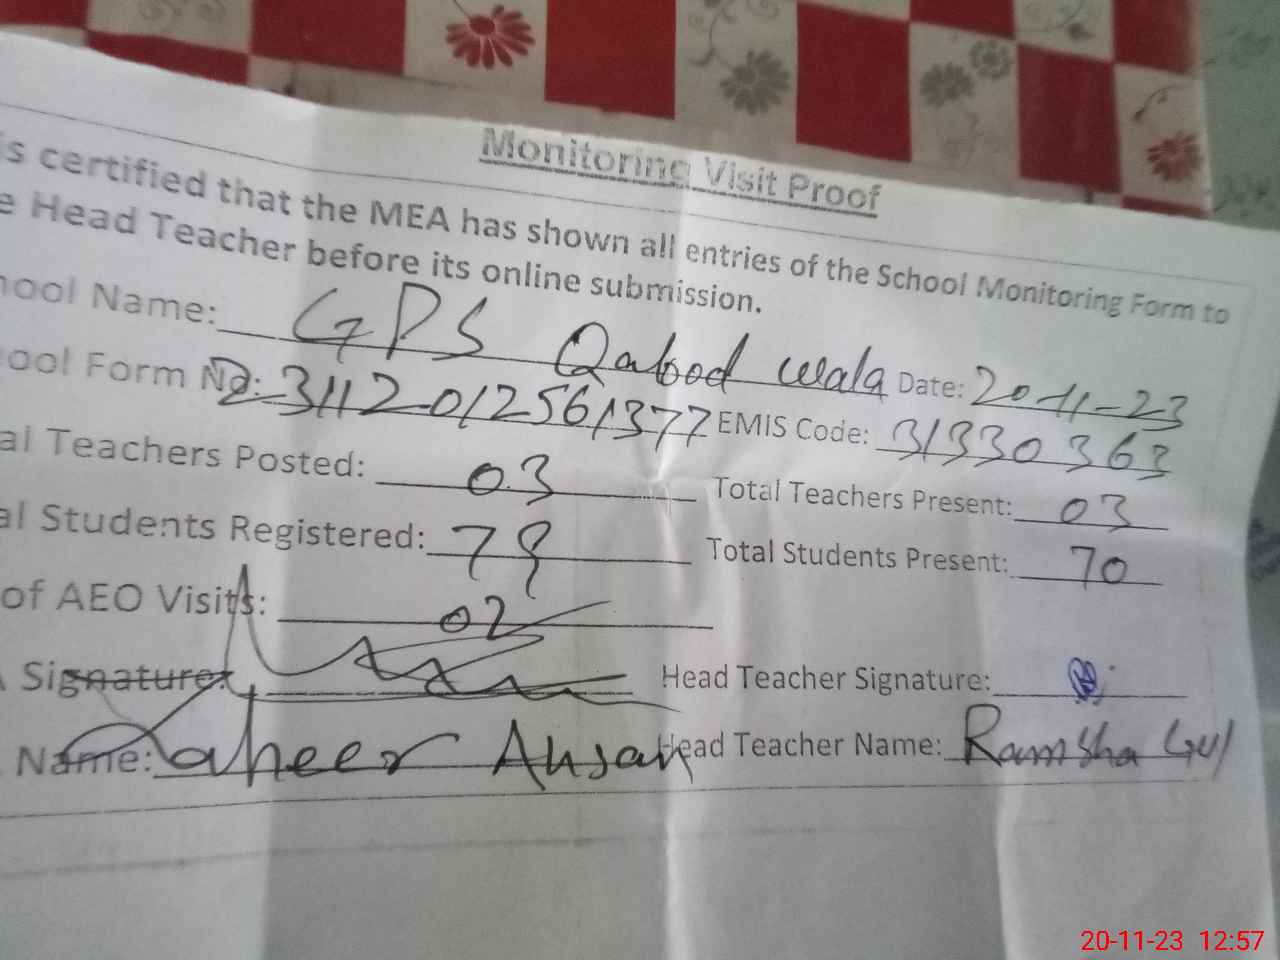 Monitoring Visit Proof
is certified that the MEA has shown all entries of the School Monitoring Form to
e Head Teacher before its online submission.
hool Name: GPS Qabood wala Date: 20-11-23
ool Form No: 3112012561377 EMIS Code: 31330363
al Teachers Posted: 03 Total Teachers Present: 03
al Students Registered: 78 Total Students Present: 70
of AEO Visits: 02
Signature: Head Teacher Signature:
Name: Zaheer Ahsan Head Teacher Name: Ramsha Gul
20-11-23 12:57